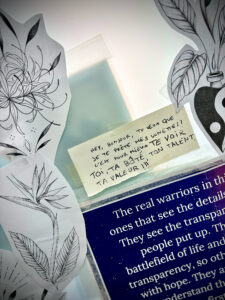 HEY, BONJOUR, TU VEUX QUE
JE TE PRÊTE MES LUNETTES?
C'EST POUR MIEUX TE VOIR
TOI, TA BÔTÉ, TON TALENT,
TA VALEUR !!!
The real warriors in th
ones that see the detail
They see the transpa
people put up. Th
battlefield of life and
transparency, so oth
with hope. They a
understand th